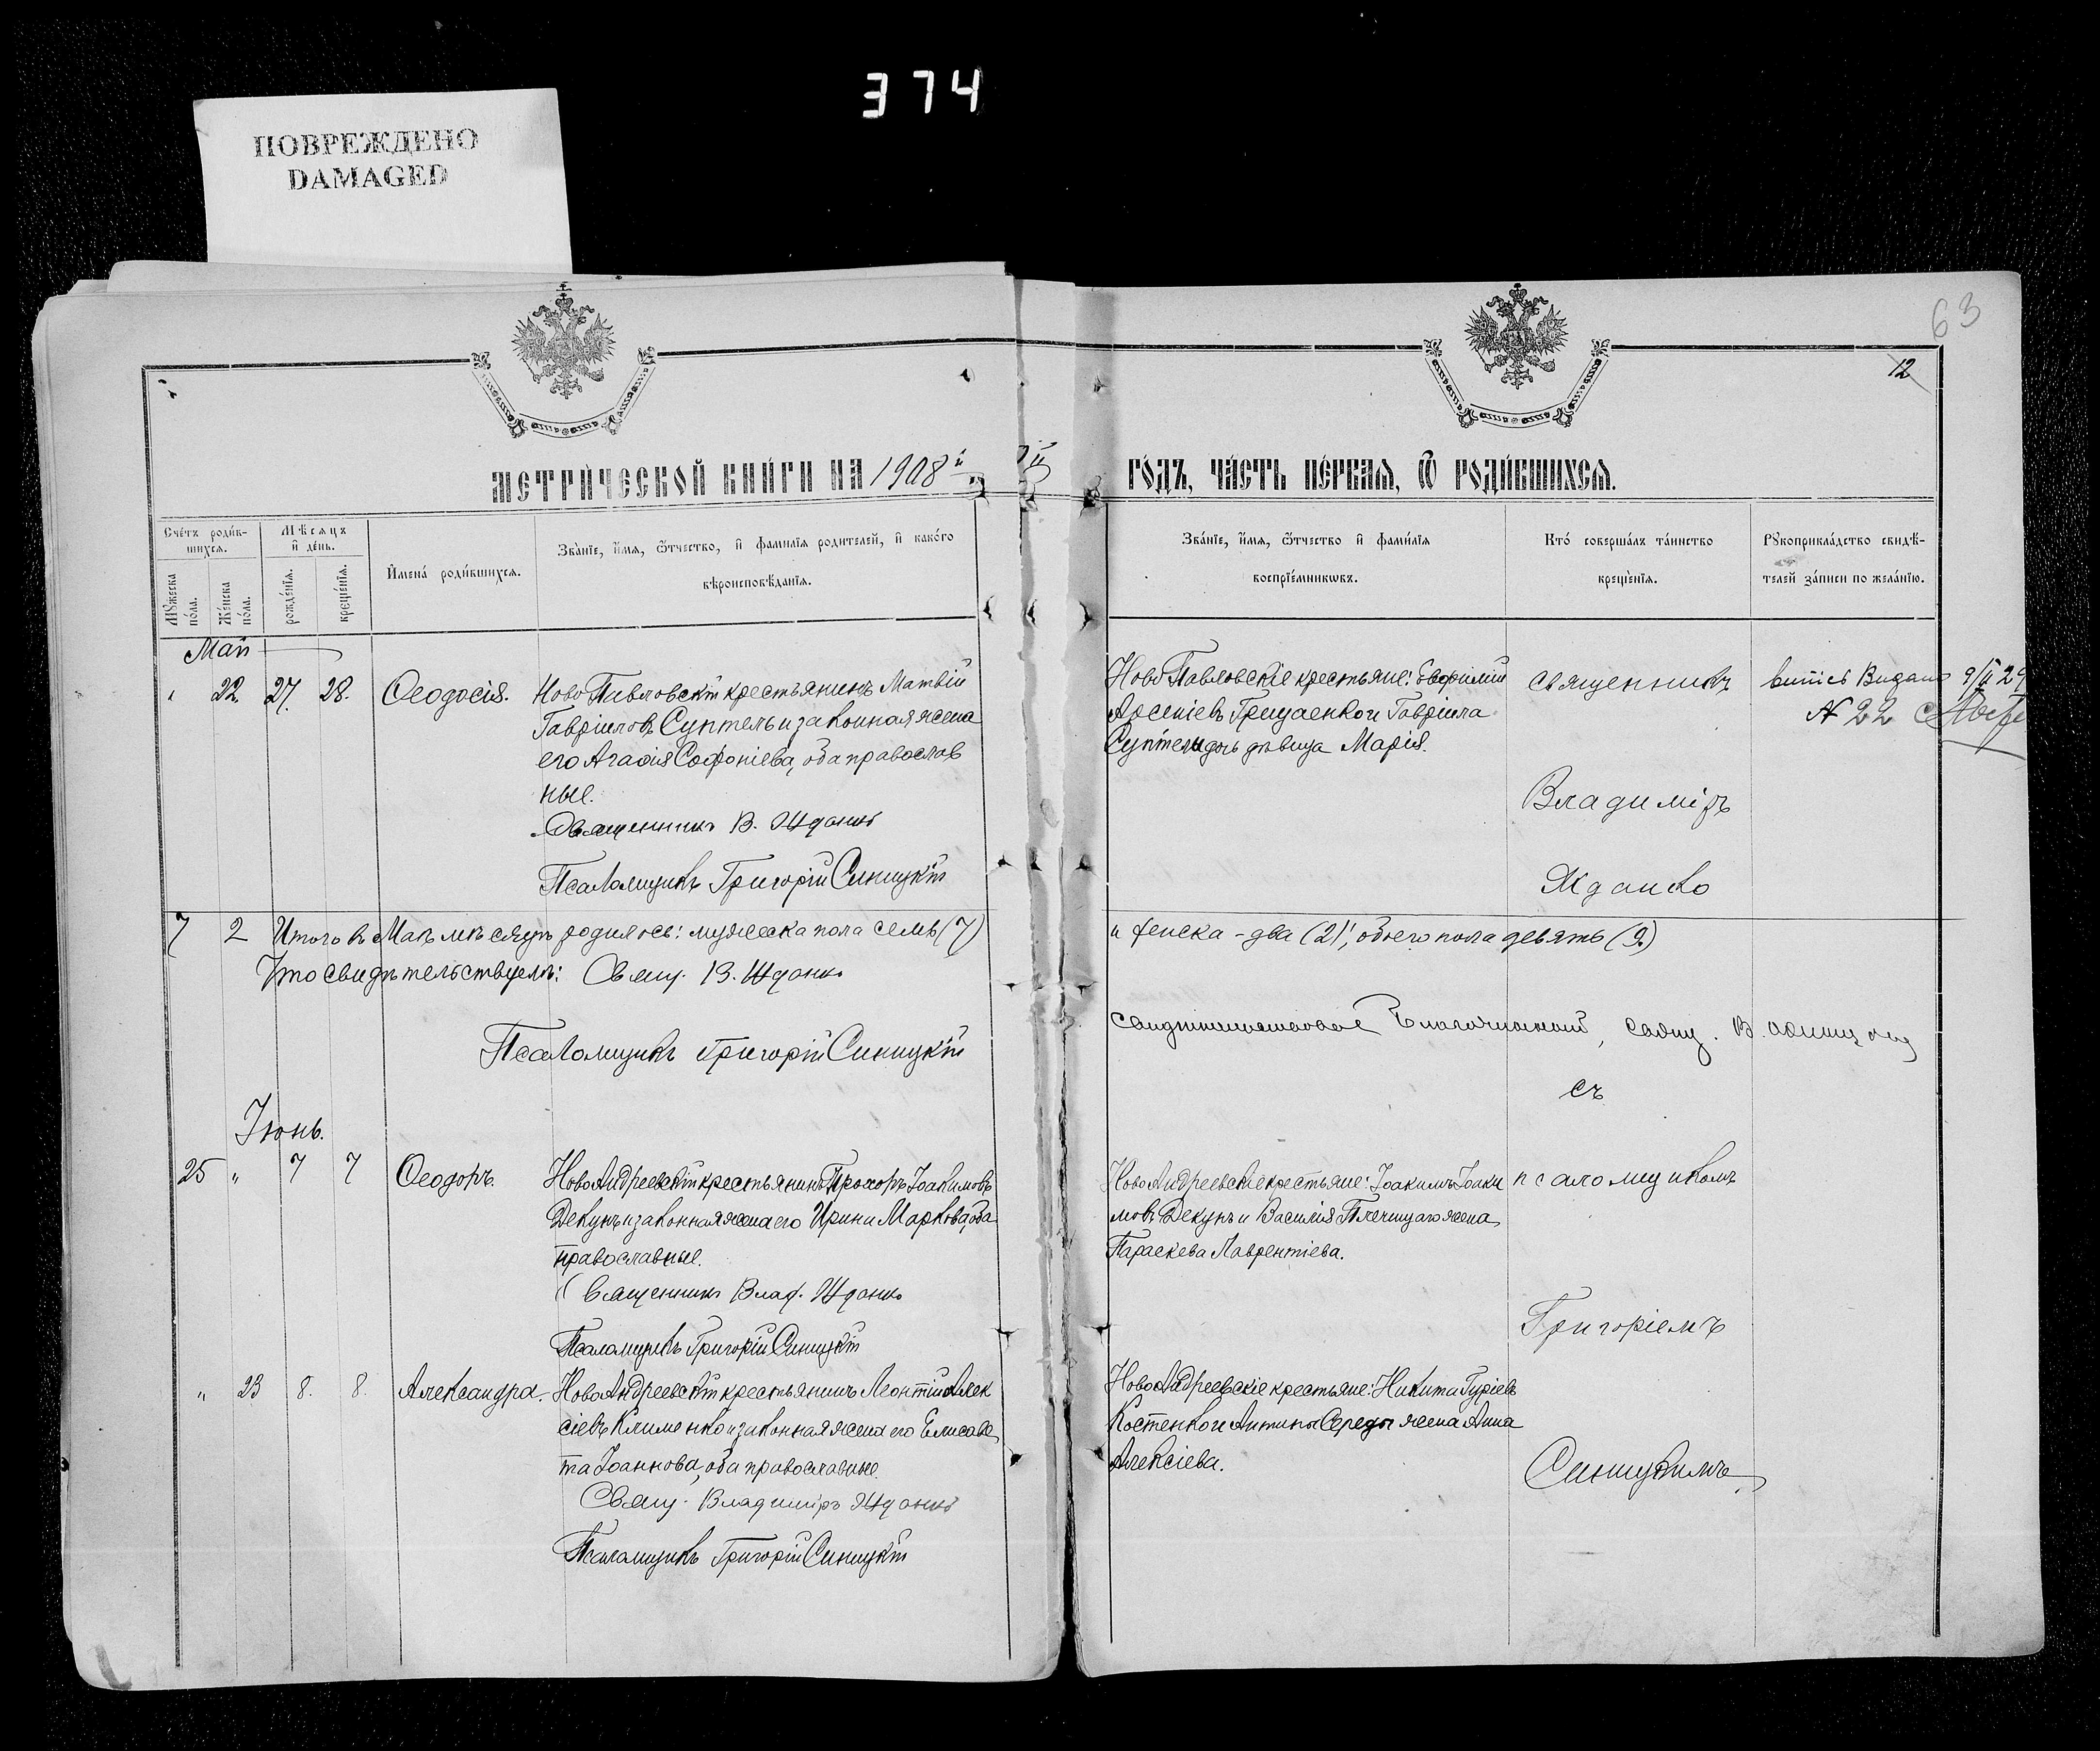 374
ПОВРЕЖДЕНО
DAMAGED
63
12
МЕТРИЧЕСКОЙ КНИГИ НА 1908й
ГОДЪ, ЧАСТЬ ПЕРВАЯ, Ѿ РОДИВШИХСЯ.
Счетъ родившихся.
Мужеска пола.
Женска пола.
Мѣсяцъ и день.
рожденія.
крещенія.
Имена родившихся.
Званіе, имя, ѿчество, и фамилія родителей, и какого
вѣроисповѣданія.
Званіе, имя, ѿчество и фамилія
воспріемниковъ.
Кто совершалъ таинство
крещенія.
Рукоприкладство свидѣ-
телей записи по желанію.
Май
22 27. 28. Ѳеодосія.
Ново Павловскій крестьянинъ Матвій
Гавріиловъ Суптель и законная жена
его Агаѳія Софоніева, оба православ
ные.
Священникъ В. Жданко
Псаломщикъ Григорій Синицкій
Ново Павловскіе крестьяне: Евфимій
Арсеніевъ Грицаенко и Гавріила
Суптеля дочь дѣвица Марія.
Священникъ
Владиміръ
Жданко
витіс Видано 9/II 29
№ 22
7 2 Итого въ Маѣ мѣсяцѣ родилось: мужеска пола семь (7)
и женска - два (2), обоего пола девять (9)
Что свидѣтельствуемъ: Свящ. В. Жданко
Псаломщикъ Григорій Синицкій
Благочинный, Свящ. В.
съ
Іюнь.
25 " 7 7 Ѳеодоръ.
НовоАндреевскій крестьянинъ Прохоръ Іоакимовъ
Декунъ и законная жена его Ирина Маркова, оба
православные.
Священникъ Влад. Жданко
Псаломщикъ Григорій Синицкій
НовоАндреевскіе крестьяне: Іоакимъ Іоаки
мовъ Декунъ и Василія жена
Параскева Лаврентіева.
псаломщикомъ
Григоріемъ
Синицкимъ
" 23 8. 8. Александра.
НовоАндреевскій крестьянинъ Леонтій Алек
сіевъ Клименко и законная жена его Елисаве
та Іоаннова, оба православные.
Свящ. Владиміръ Жданко
Псаломщикъ Григорій Синицкій
НовоАндреевскіе крестьяне: Никита Гуріевъ
Костенко и Антипы Середы жена Анна
Алексіева.